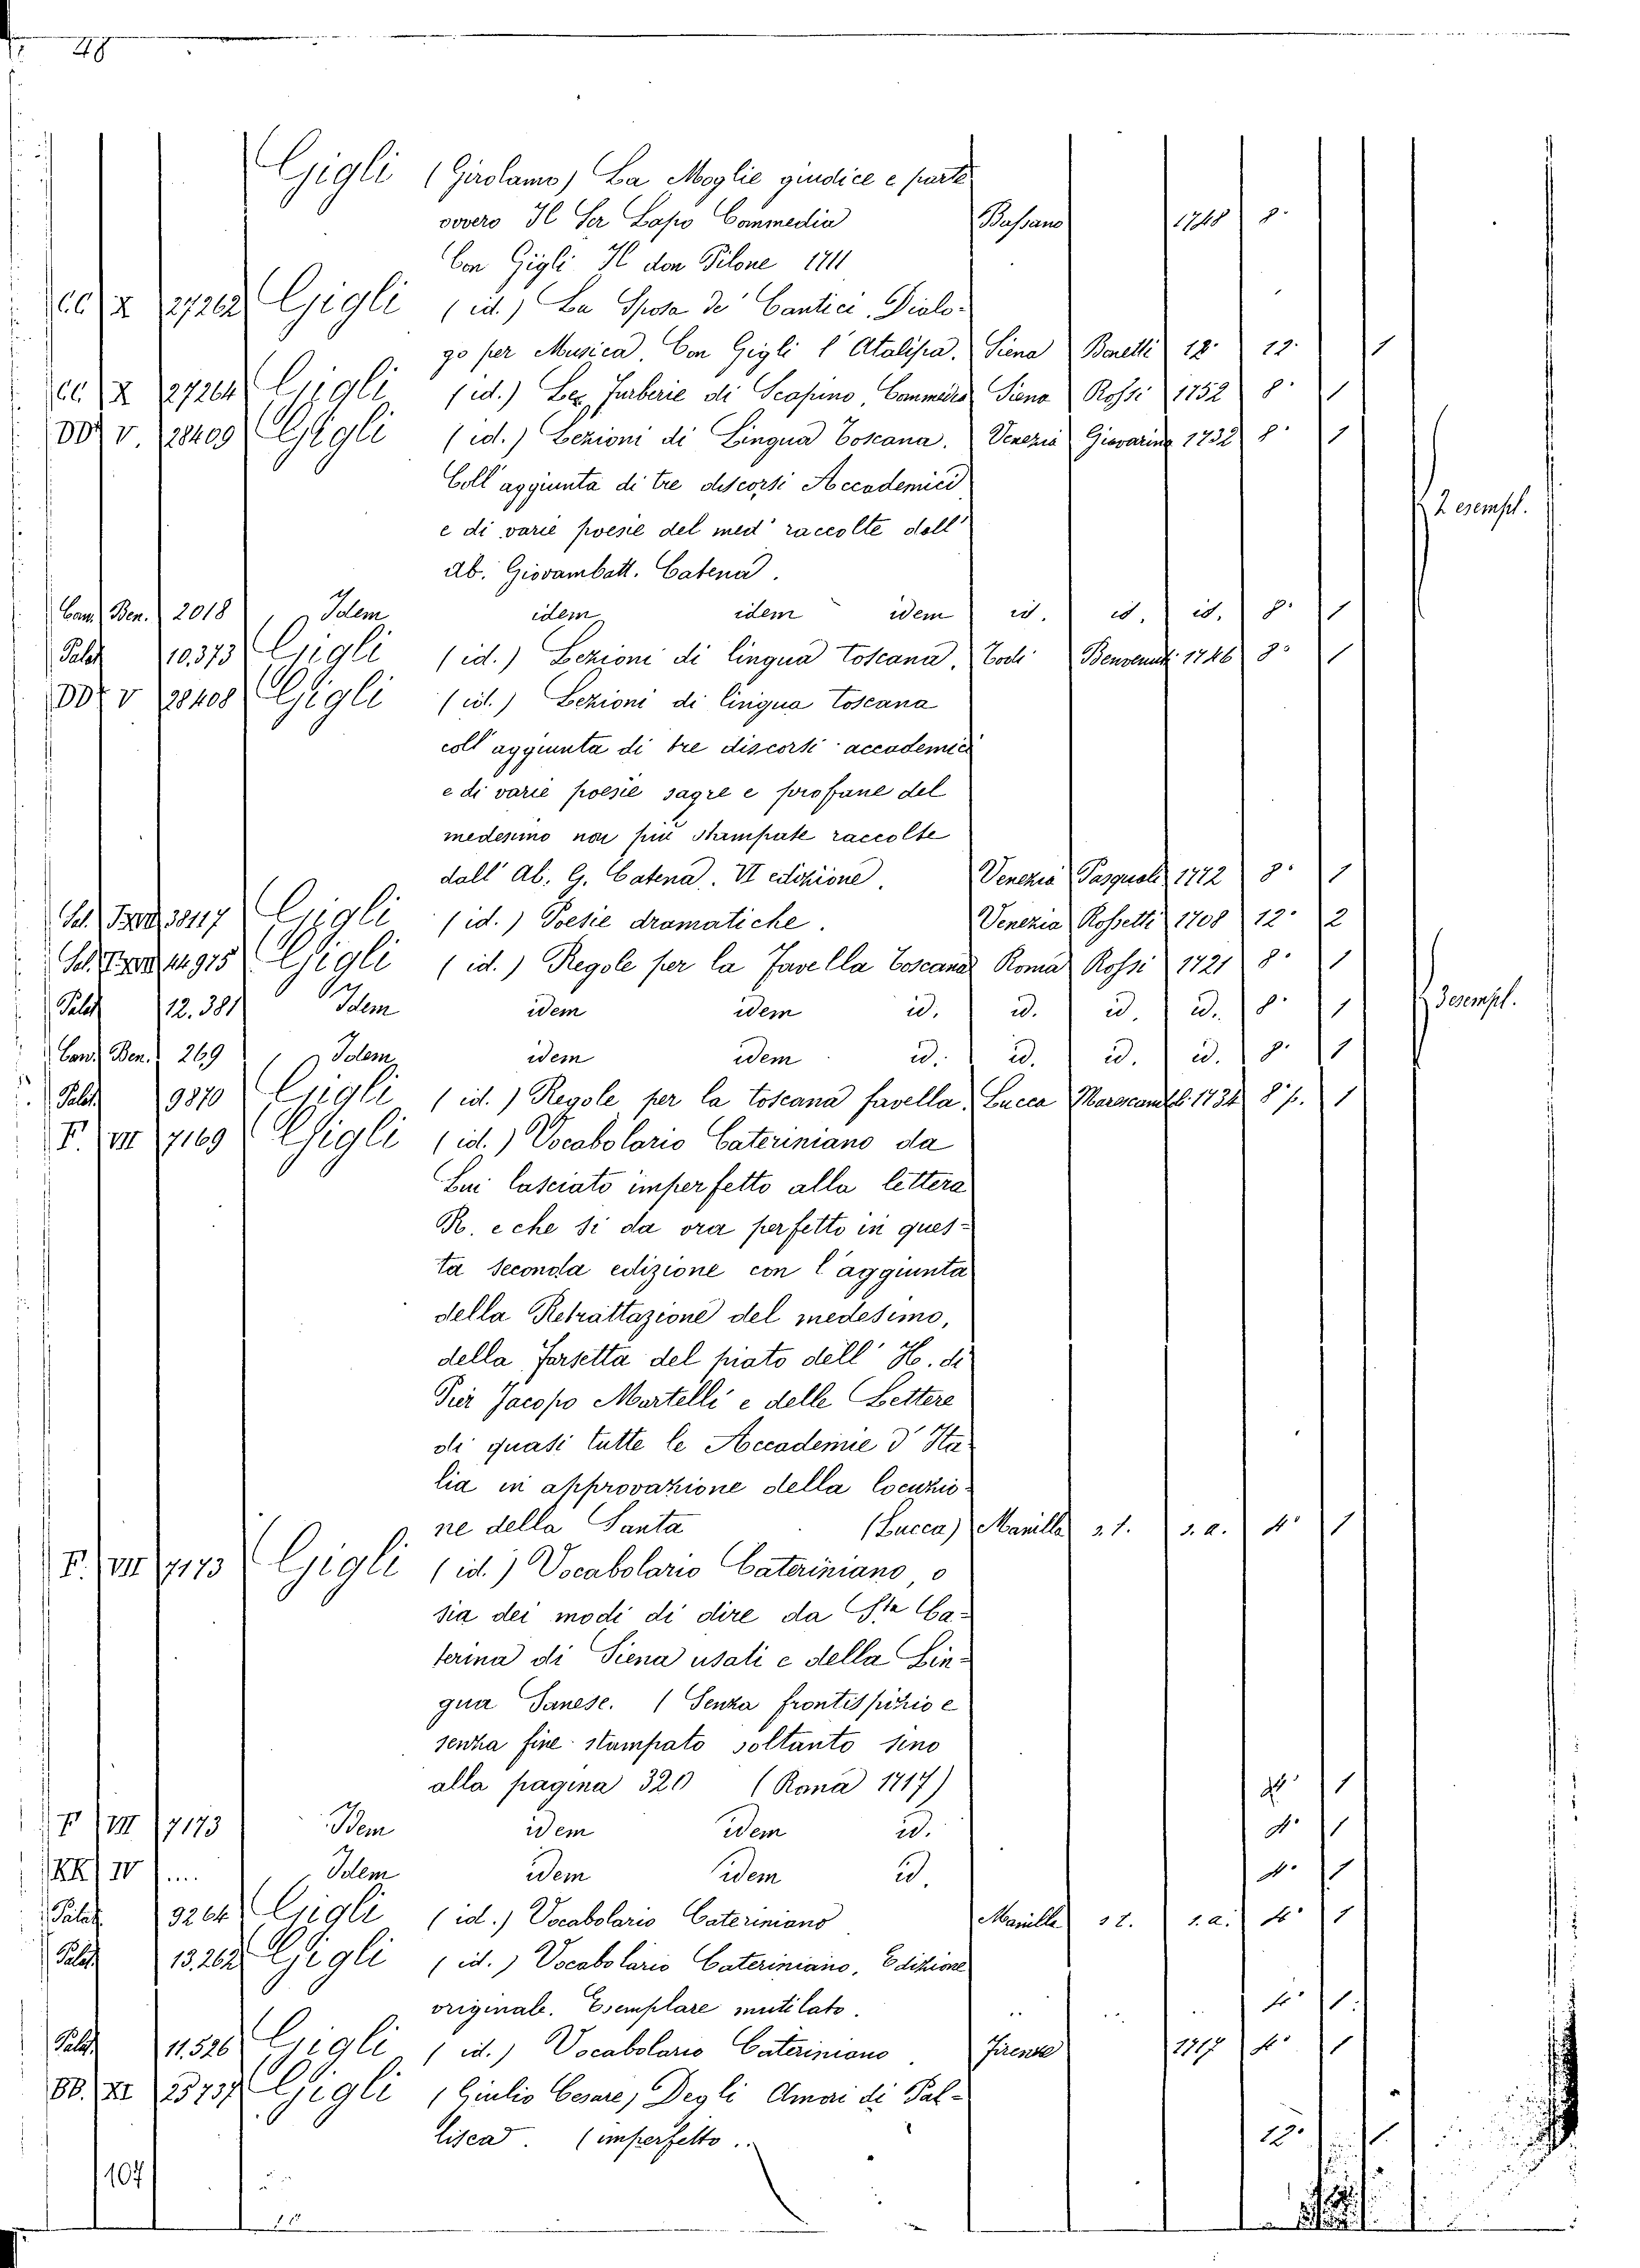 48
Gigli (Girolamo) La Moglie giudice e parte
ovvero Il Ser Lapo Commedia Bassano 1748 8°
Con Gigli Il don Pilone 1711
CC X 27262 Gigli (id.) La Sposa de' Cantici. Dialo-
go per Musica. Con Gigli l'Atalipa. Siena Bonetti 12° 1
CC X 27264 Gigli (id.) Le Furberie di Scapino, Commedia Siena Rossi 1752 8° 1
DD V 28409 Gigli (id.) Lezioni di Lingua Toscana. Venezia Giavarina 1732 8° 1
Coll'aggiunta di tre discorsi Accademici 2 esempl.
e di varie poesie del med° raccolte dall'
ab. Giovambatt. Catena.
Cam. Ben. 2018 Idem idem idem idem id. id. id. 8° 1
Palat 10.373 Gigli (id.) Lezioni di lingua toscana, Todi Benvenuti 1746 8° 1
DD V 28408 Gigli (id.) Lezioni di lingua toscana
coll'aggiunta di tre discorsi accademici
e di varie poesie sagre e profane del
medesimo non più stampate raccolte
dall'Ab. G. Catena. VI edizione. Venezia Pasquali 1772 8° 1
38117 Gigli (id.) Poesie dramatiche. Venezia Rossetti 1708 12° 2
44.975 Gigli (id.) Regole per la favella Toscana Roma Rossi 1721 8° 1
Palat 12.381 Idem idem idem id. id. id. id. 8° 1 3 esempl.
Cam. Ben. 269 Idem idem idem id. id. id. id. 8° 1
Palat. 9870 Gigli (id.) Regole per la toscana favella, Lucca Marescandoli 1734 8° p. 1
F. VII 7169 Gigli (id.) Vocabolario Cateriniano da
Lui lasciato imperfetto alla lettera
R. e che si da ora perfetto in ques-
ta seconda edizione con l'aggiunta
della Retrattazione del medesimo,
della Farsetta del piato dell'H. di
Pier Jacopo Martelli e delle Lettere
di quasi tutte le Accademie d'Ita-
lia in approvazione della locuzio-
ne della Santa (Lucca) Manilla s. t. s. a. 4° 1
F. VII 7173 Gigli (id.) Vocabolario Cateriniano, o
sia dei modi di dire da Sta Ca-
terina di Siena usati e della Lin-
gua Sanese. (Senza frontispizio e
senza fine stampato soltanto sino
alla pagina 320 (Roma 1717) 4° 1
F VII 7173 Idem idem idem id. 4° 1
KK IV .... Idem idem idem id. 4° 1
Palat. 9264 Gigli (id.) Vocabolario Cateriniano Manilla s t. s. a. 4° 1
Palat 13.262 Gigli (id.) Vocabolario Cateriniano, Edizione
originale. Esemplare mutilato. .. .. .. 4° 1
Palat. 11.526 Gigli (id.) Vocabolario Cateriniano. Firenze 1717 4° 1
BB. XI 25737 Gigli (Giulio Cesare) Degli Amori di Pal-
lisca. (imperfetto.. 12° 1
107